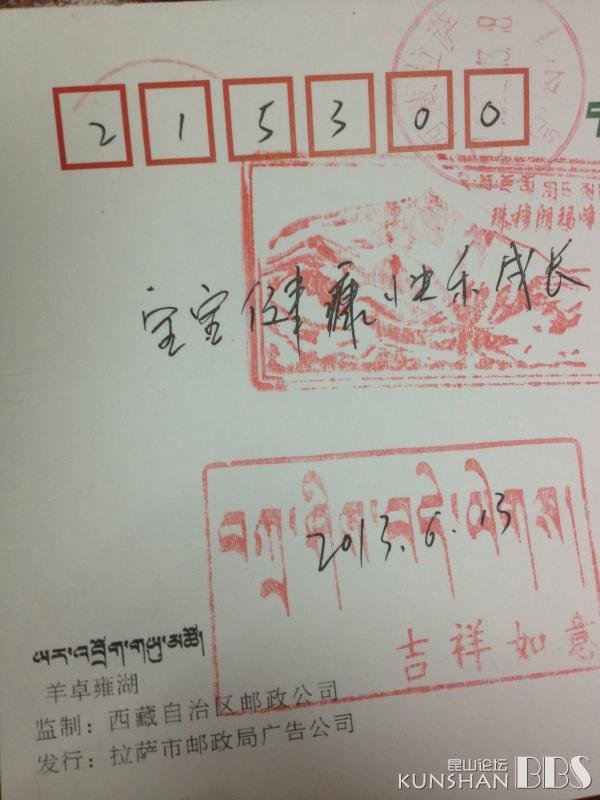 西藏拉萨
2 1 5 3 0 0
珠穆朗玛峰
宝宝健康快乐成长
བཀྲ་ཤིས་བདེ་ལེགས།
2013.6.13
吉祥如意
ཡར་འབྲོག་གཡུ་མཚོ།
羊卓雍湖
监制：西藏自治区邮政公司
发行：拉萨市邮政局广告公司
昆山论坛
KUNSHAN BBS